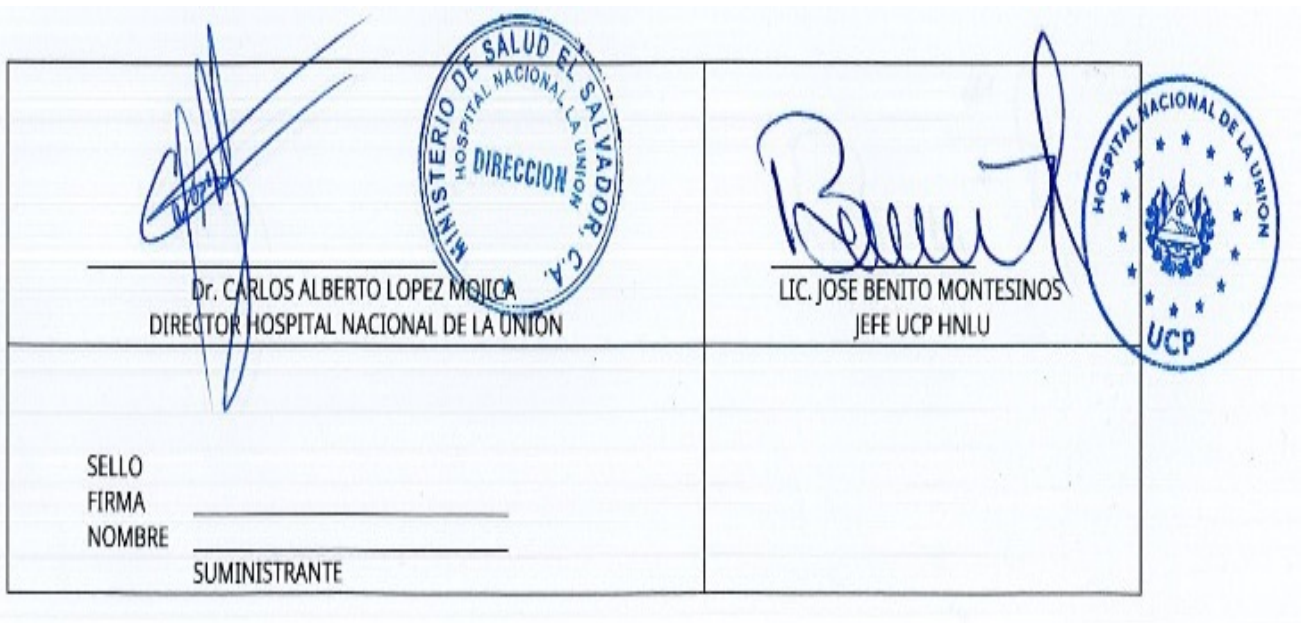 MINISTERIO DE SALUD EL SALVADOR, C.A.
HOSPITAL NACIONAL LA UNION
DIRECCION
Dr. CARLOS ALBERTO LOPEZ MOJICA
DIRECTOR HOSPITAL NACIONAL DE LA UNIÓN
HOSPITAL NACIONAL DE LA UNION
UCP
LIC. JOSE BENITO MONTESINOS
JEFE UCP HNLU
SELLO
FIRMA
NOMBRE
SUMINISTRANTE